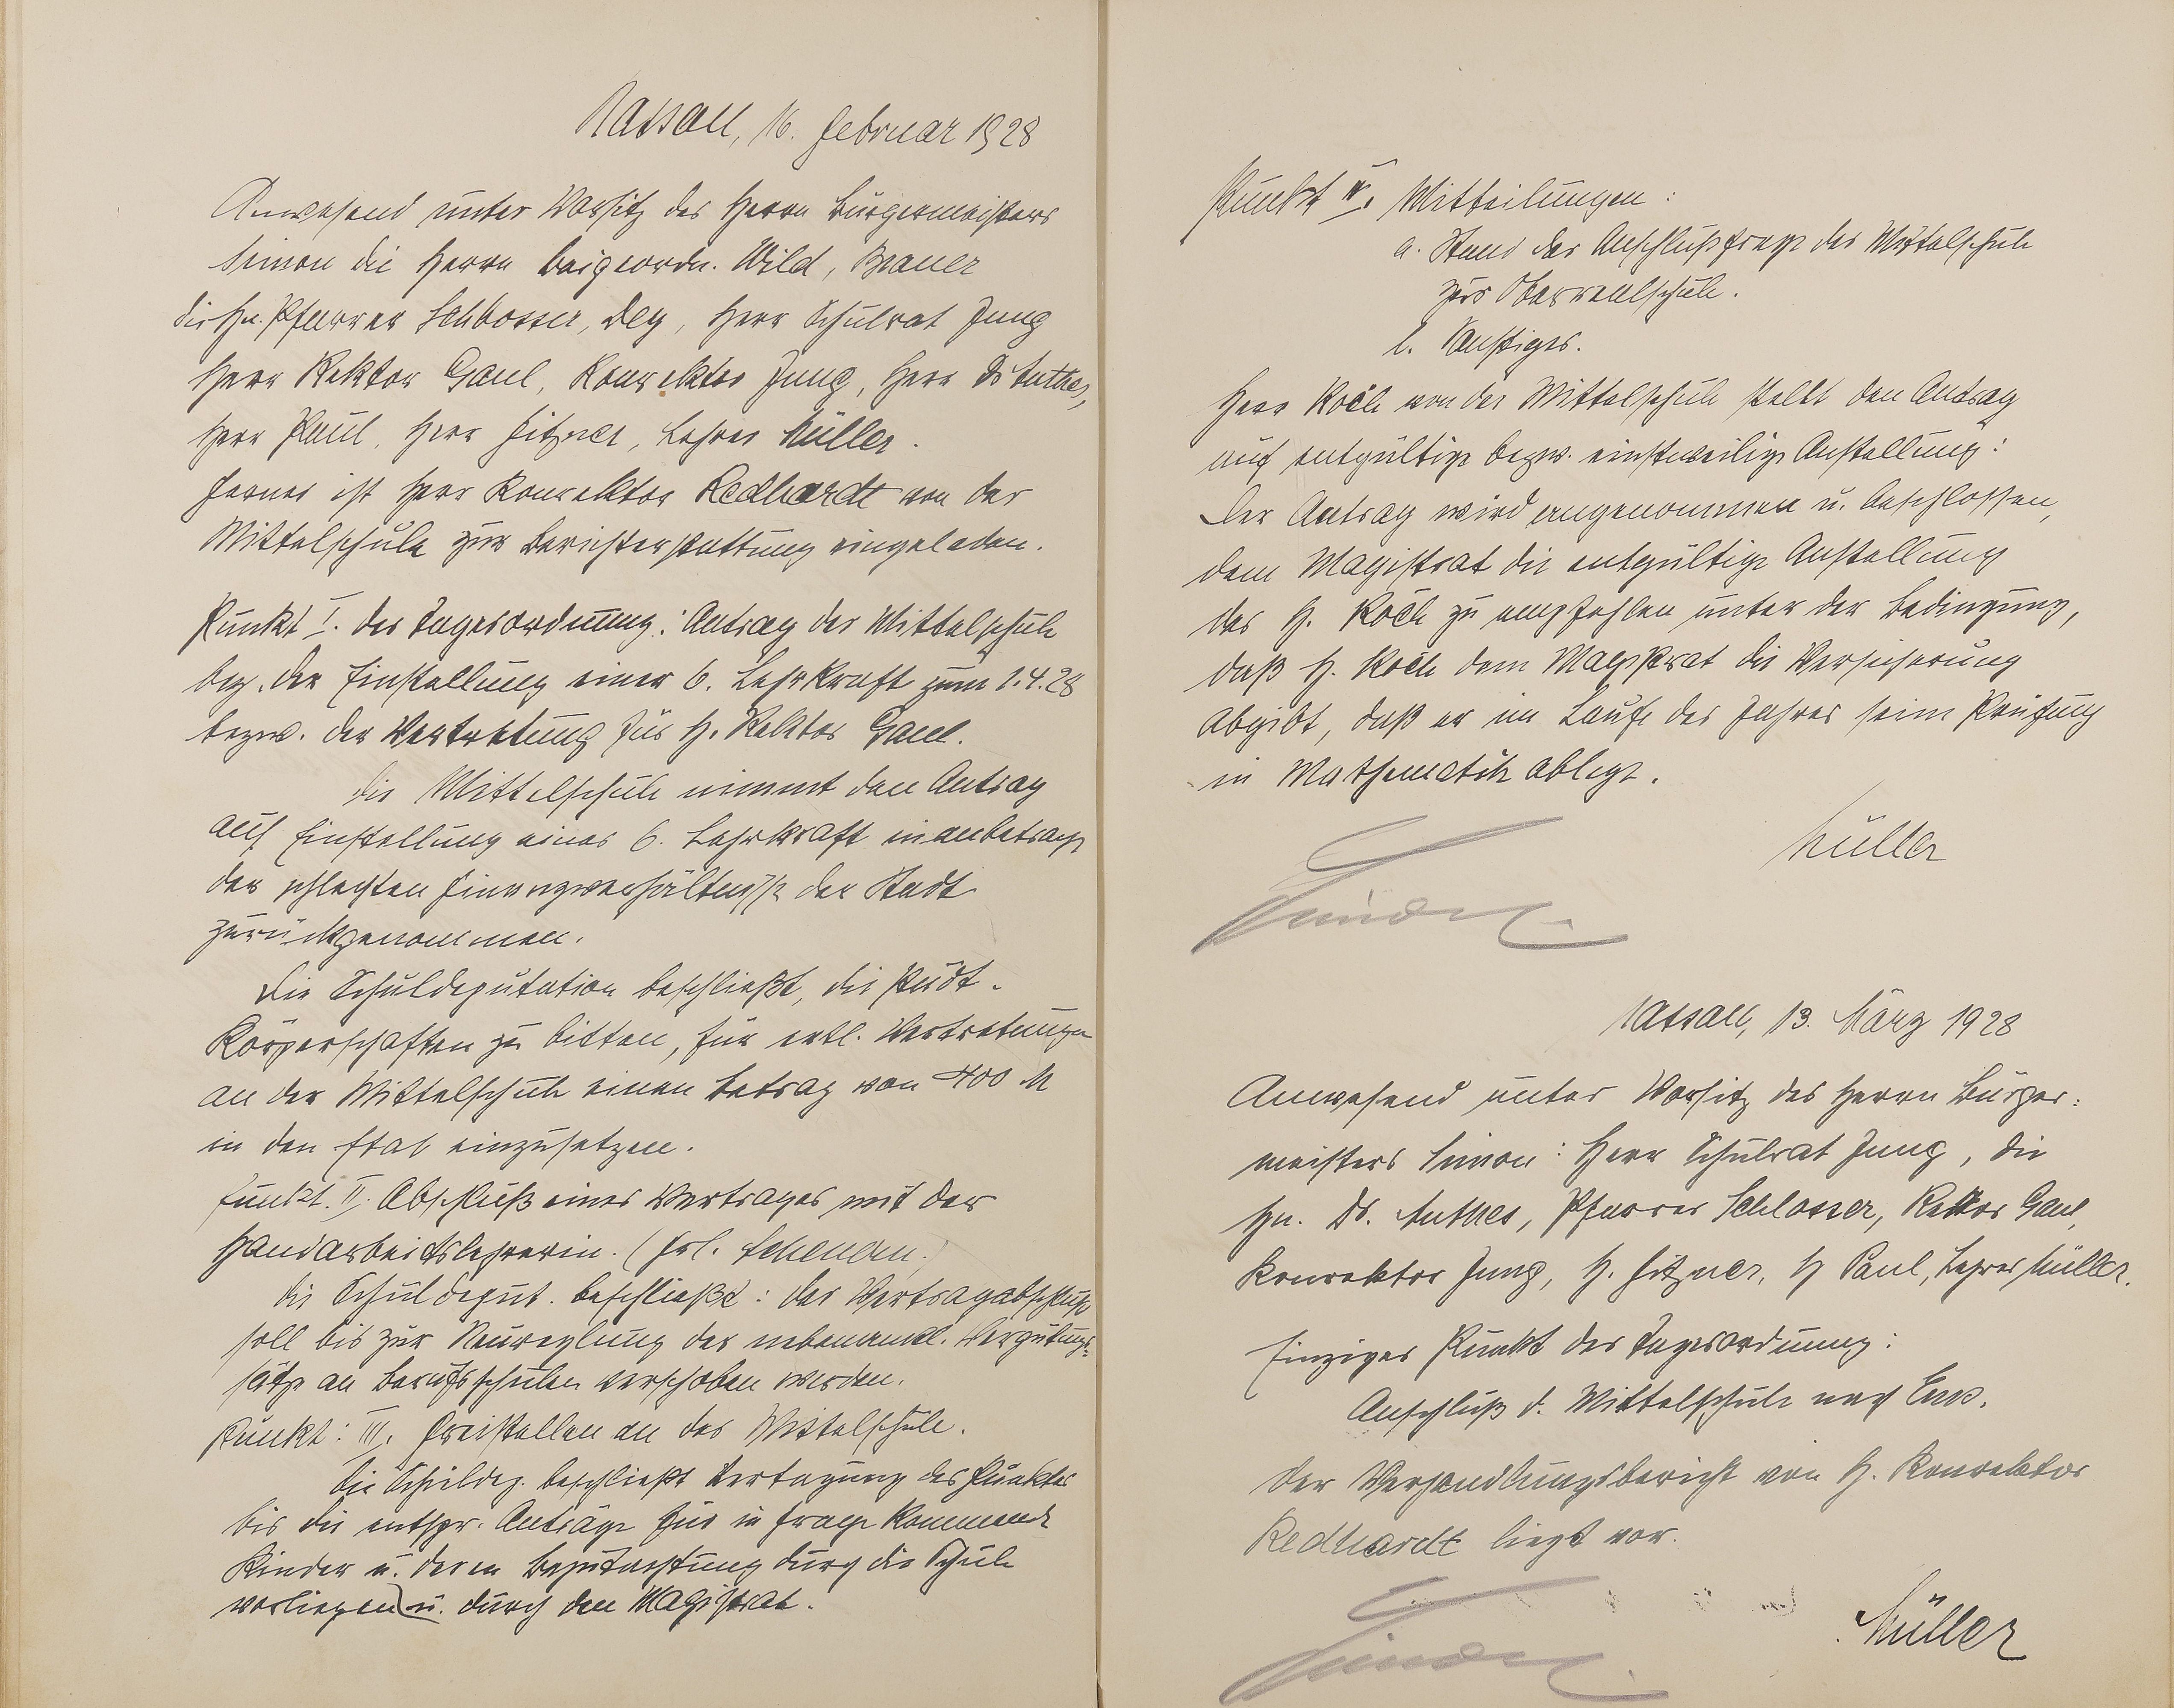 Nassau, 16. Februar 1928
Anwesend unter Vorsitz des Herrn Bürgermeisters
Simon die Herrn Beigeordn. Wild, Brauer
die Hn. Pfarrer Schlosser, Dey, Herr Schulrat Jung
Herr Rektor Gaul, Konrektor Jung, Herr Dr Anthes,
Herr Paul, Herr Fitzner, Lehrer Müller.
Ferner ist Herr Konrektor Redhardt von der
Mittelschule zur Berichterstattung eingeladen.
Punkt I. der Tagesordnung: Antrag der Mittelschule
bez. der Einstellung einer 6. Lehrkraft zum 1.4.28
bezw. der Vertretung für H. Rektor Gaul.
Die Mittelschule nimmt den Antrag
auf Einstellung einer 6. Lehrkraft in anbetracht
der schlechten Finanzverhältnisse der Stadt
zurückgenommen.
Die Schuldeputation beschließt, die städt.
Körperschaften zu bitten, für evtl. Vertretungen
an der Mittelschule einen Betrag von 400 M
in den Etat einzusetzen.
Punkt. II. Abschluß eines Vertrages mit der
Handarbeitslehrerin. (Frl.
Die Schuldeput. beschließt: der Vertragabschluß
soll bis zur Neureglung der nebenamtl. Vergütungs-
sätze an Berufsschulen verschoben werden.
Punkt: III. Freistellen an der Mittelschule.
Die Schuldep. beschließt Vertagung des Punktes
bis die entspr. Anträge für in Frage kommende
Kinder u. deren Begutachtung durch die Schule
vorliegen u. durch den Magistrat.
Punkt IV. Mitteilungen:
a. Stand der Anschlußfrage der Mittelschule
zur Oberrealschule.
b. Sonstiges.
Herr Koch von der Mittelschule stellt den Antrag
auf entgültige bezw. einstweilige Anstellung:
Der Antrag wird angenommen u. beschlossen,
dem Magistrat die entgültige Anstellung
des H. Koch zu empfehlen unter der Bedingung,
daß H. Koch dem Magistrat die Versicherung
abgibt, daß er im Laufe des Jahres seine Prüfung
in Mathematik ablegt.
Müller
Nassau, 13. März 1928
Anwesend unter Vorsitz des Herrn Bürger-
meisters Simon: Herr Schulrat Jung, die
Hn. Dr. Anthes, Pfarrer Schlosser, Rektor Gaul,
Konrektor Jung, H. Fitzner, H Paul, Lehrer Müller.
Einziger Punkt der Tagesordnung:
Anschluß d. Mittelschule nach Ems.
Der Verhandlungsbericht von H. Konrektor
Redhardt liegt vor.
Müller